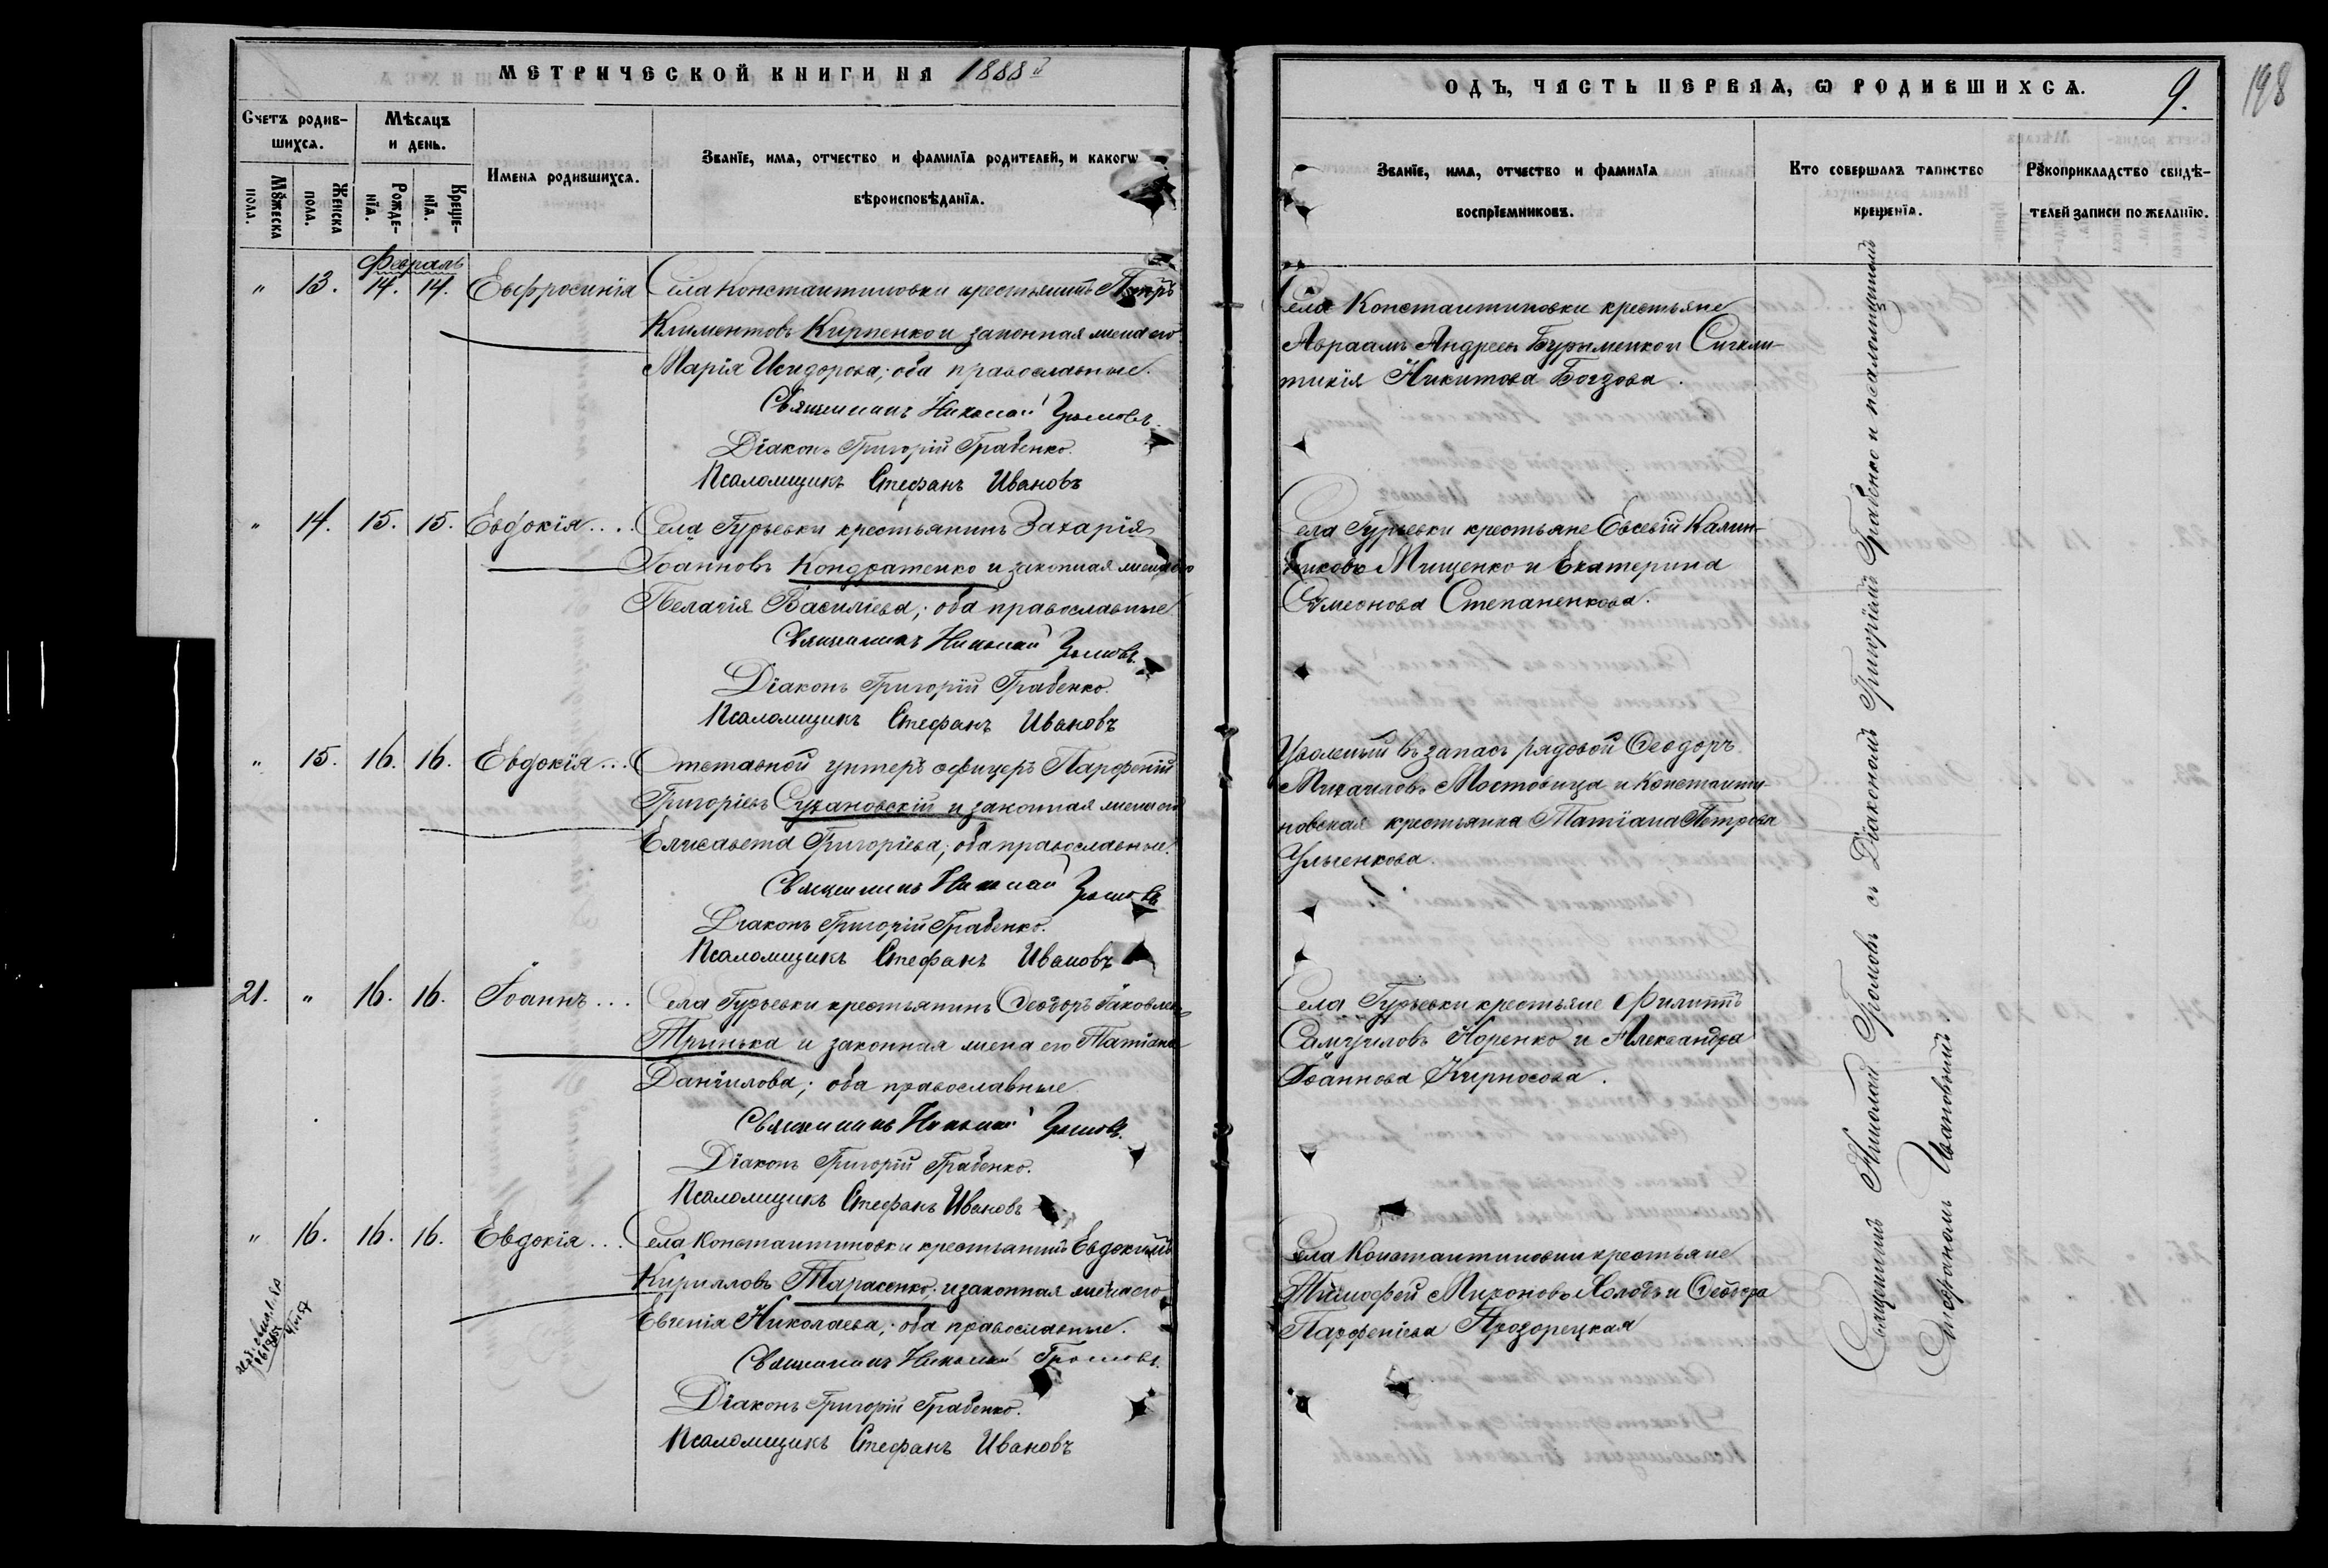 МЕТРИЧЕСКОЙ КНИГИ НА 1888й
Счетъ родив-
шихся.
Мѣсяцъ
и день.
Имена родившихся.
Званїе, имя, отчество и фамилїя родителей, и какогѡ
вѣроисповѣданїя.
Мꙋжеска
пола.
Женска
пола.
Рожде-
нїя.
Креще-
нїя.
Февраль
" 13. 14. 14. Евфросинія Села Константиновки крестьянинъ Петръ
Климентовъ Кирпенко и законная жена его
Марія Исидорова; оба православные.
Священникъ Николай Громовъ.
Діаконъ Григорій Грабенко.
Псаломщикъ Стефанъ Ивановъ
" 14. 15. 15. Евдокія.... Села Гурьевки крестьянинъ Захарія
Іоанновъ Кондратенко и законная жена его
Пелагія Василіева; оба православные
Священникъ Николай Громовъ.
Діаконъ Григорій Грабенко.
Псаломщикъ Стефанъ Ивановъ
" 15. 16. 16. Евдокія... Отставной унтеръ офицеръ Парфеній
Григоріевъ Сухановскій и законная жена его
Елисавета Григоріева; оба православные.
Священникъ Николай Громовъ
Діаконъ Григорій Грабенко.
Псаломщикъ Стефанъ Ивановъ
21. " 16. 16. Іоаннъ... Села Гурьевки крестьянинъ Ѳеодоръ Іаковлевъ
Тринька и законная жена его Татіана
Даніилова; оба православные
Священникъ Николай Громовъ.
Діаконъ Григорій Грабенко.
Псаломщикъ Стефанъ Ивановъ
" 16. 16. 16. Евдокія... Села Константиновки крестьянинъ Евдокимъ
Кирилловъ Тарасенко; и законная жена его
Евгенія Николаева; оба православные.
Священникъ Николай Громовъ.
Діаконъ Григорій Грабенко.
Псаломщикъ Стефанъ Ивановъ
ОДЪ, ЧАСТЬ ПЕРВАЯ, Ѡ РОДИВШИХСЯ. 9.
198
Званїе, имя, отчество и фамилїя
воспрїемниковъ.
Кто совершалъ таинство
крещенїя.
Рꙋкоприкладство свидѣ-
телей записи по желанїю.
Села Константиновки крестьяне
Авраамъ Андреевъ Бурыменко и Сигкли-
тикія Никитова
Села Гурьевки крестьяне Евсевій Калин-
никовъ Мищенко и Екатерина
Сѵмеонова Степаненкова.
Уволеный въ запасъ рядовой Ѳеодоръ
Михаиловъ Мостовица и Константи-
новская крестьянка Татіана Петрова
Ульенкова.
Села Гурьевки крестьяне Филиппъ
Самуиловъ Коренко и Александра
Іоаннова Кирносова.
Села Константиновки крестьяне
Тимофей Мироновъ Холодъ и Ѳеодора
Парфеніева Прозорецкая
Священникъ Николай Громовъ съ Діакономъ Григоріемъ Грабенко и псаломщикомъ
Стефаномъ Ивановымъ.